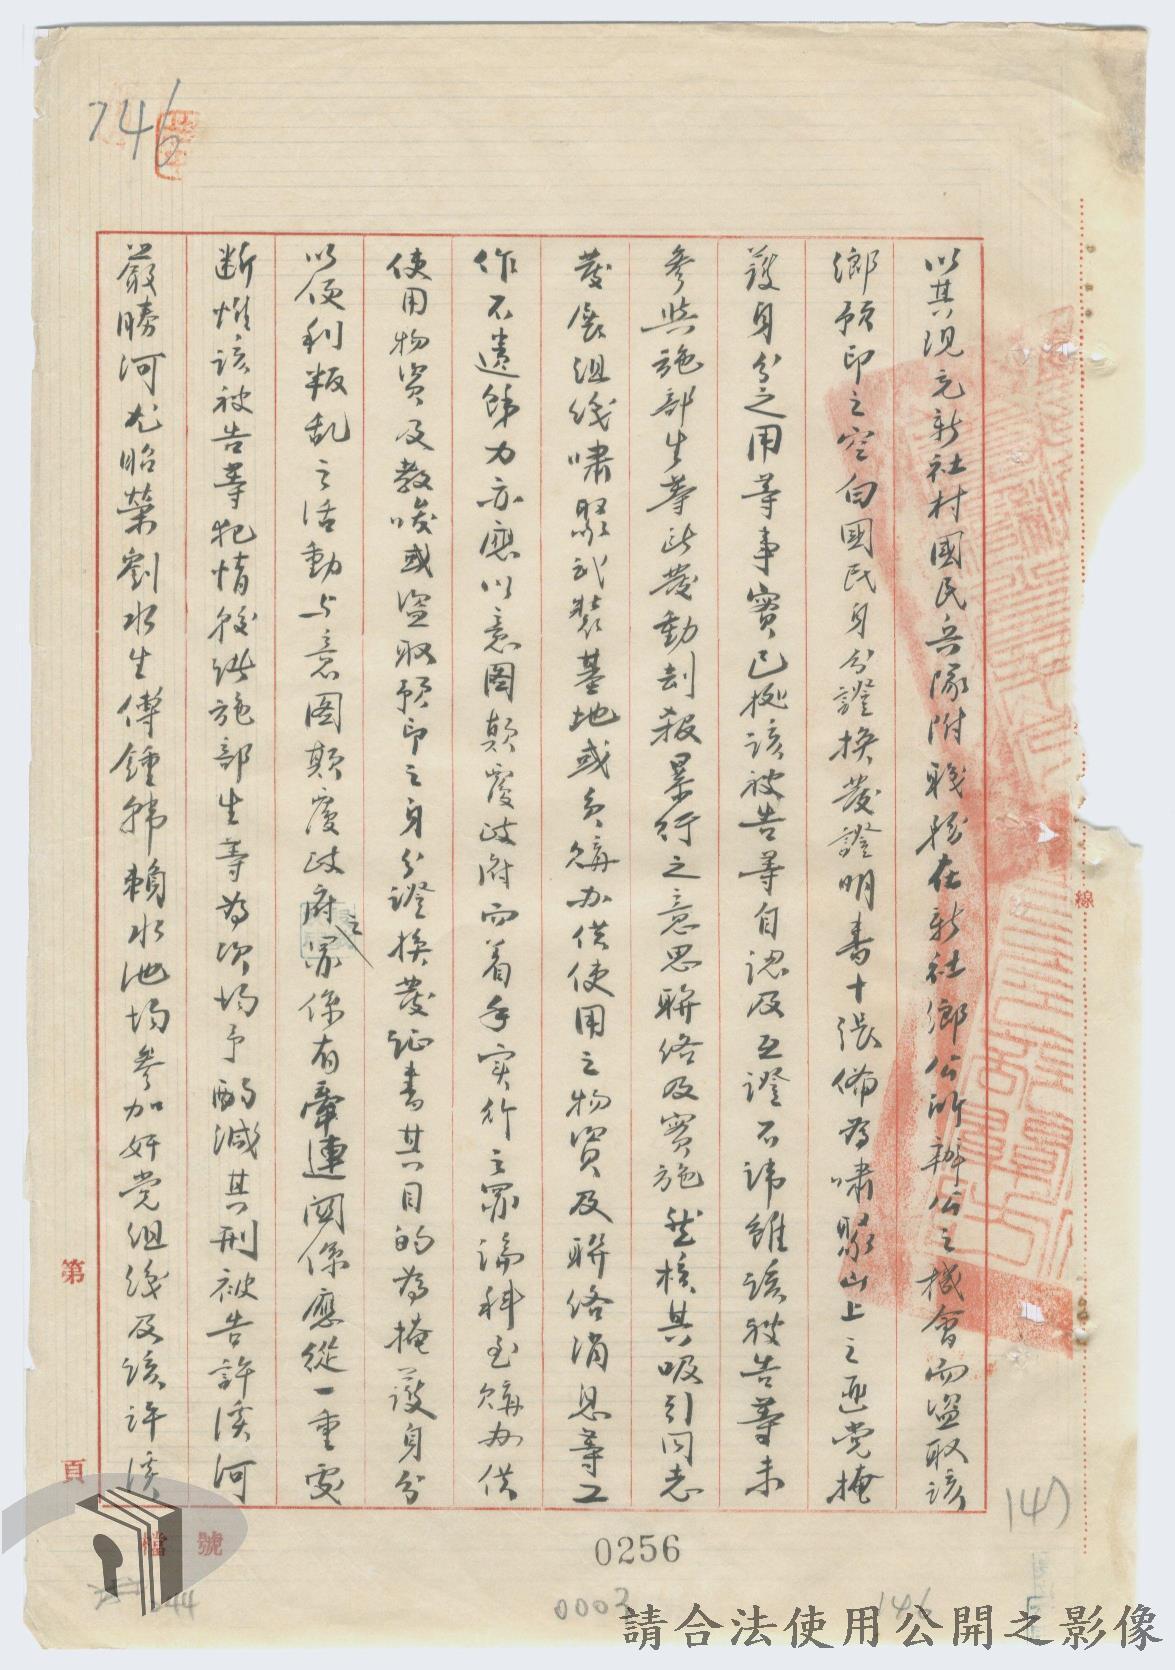 746
以其現充新社村國民兵隊附職務在新社鄉公所辦公之機會而盜取該
鄉預印之空白國民身分證換發證明書十張備為嘯聚山上之匪党掩
護身分之用等事實已據該被告等自認及互證不諱雖該被告等未
參與施部生等此發動刦殺暴行之意思聯絡及實施然核其吸引同志
發展組织嘯聚武裝基地或負購办供使用之物資及聯络消息等工
作不遺餘力亦應以意图顛覆政府而着手实行之罪論科至購办供
使用物資及教唆或盜取預印之身分證換發证書其目的為掩護身分
以便利叛乱之活動与意图顛覆政府之罪係有牽連関係應從一重處
断惟該被告等犯情較諸施部生等為次均予酌減其刑被告許溪河
嚴勝河尤昭榮劉水生傅鍾錦賴水池均參加奸党组织及該許溪
線
第
頁
檔號
147
0256
0003
146
請合法使用公開之影像